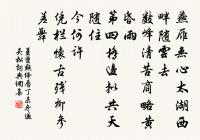 燕雁無心太湖西
畔隨雲去
數峰清苦商略黄
昏雨
第四橋邊擬共天
隨住
今何許
凭栏懷古殘柳參
差舞
姜夔點絳唇丁未冬過
吳松